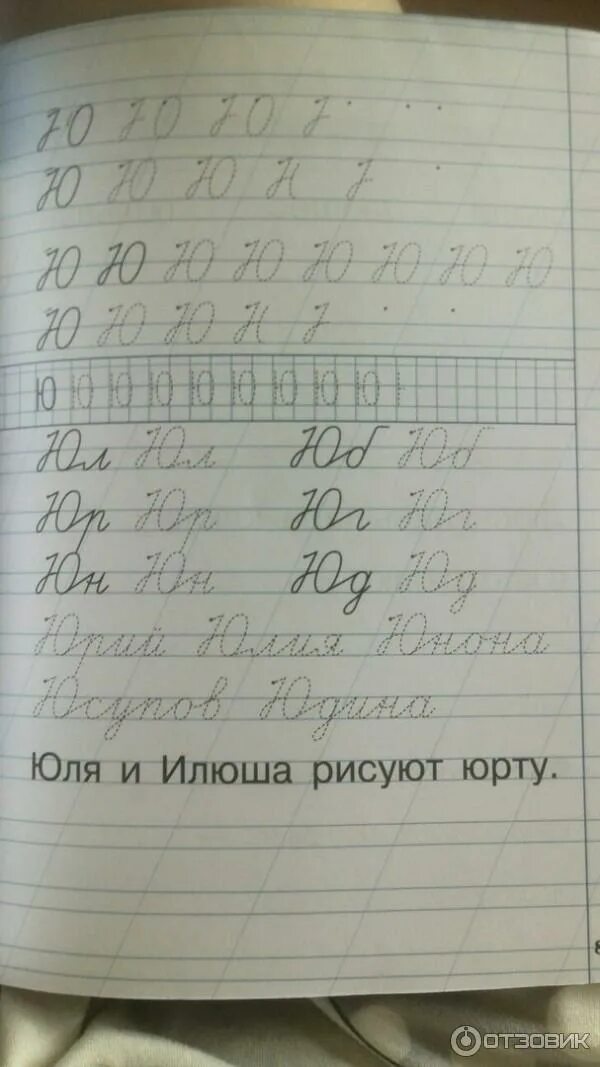 Ю Ю Ю
Ю Ю Ю
Ю Ю Ю Ю Ю Ю Ю Ю
Ю Ю Ю
Ю Ю Ю Ю Ю Ю Ю Ю Ю
Юл Юл Юб Юб
Юр Юр Юг Юг
Юн Юн Юд Юд
Юрий Юлия Юнона
Юсупов Юдина
Юля и Илюша рисуют юрту.
ОТЗОВИК